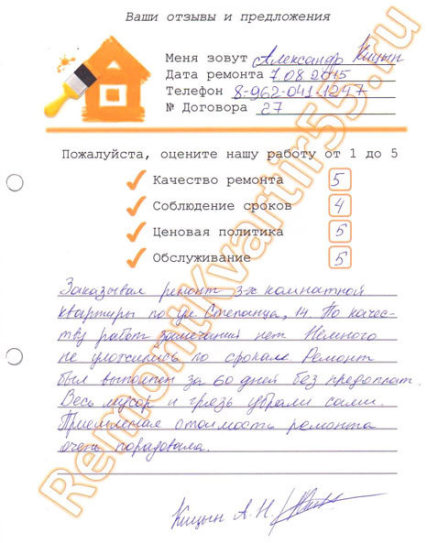 Ваши отзывы и предложения
Меня зовут Александр Кицын
Дата ремонта 7.08.2015
Телефон 8-962-041-1247
№ Договора 27
Пожалуйста, оцените нашу работу от 1 до 5
Качество ремонта 5
Соблюдение сроков 4
Ценовая политика 5
Обслуживание 5
Заказывал ремонт 3-х комнатной
квартиры по ул Степанца, 14. По качес-
тву работ замечаний нет. Немного
не уложились по срокам. Ремонт
был выполнен за 60 дней без предоплат.
Весь мусор и грязь убрали сами.
Приемлемая стоимость ремонта
очень порадовала.
Кицын А.Н.
RemontKvartir55.ru